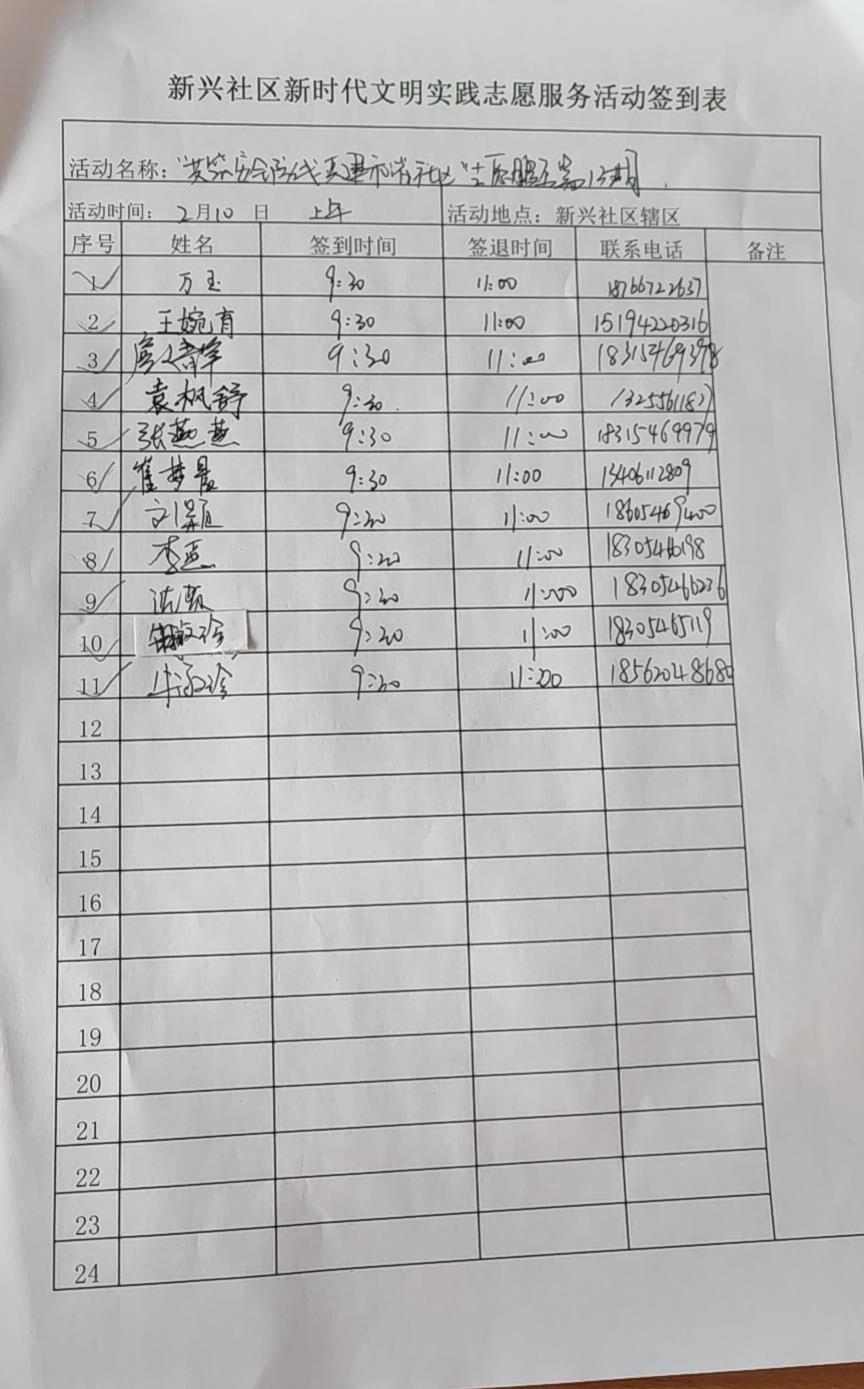 新兴社区新时代文明实践志愿服务活动签到表
活动名称：“共筑安全防线 共建和谐社区”志愿服务
活动时间： 2月10日 上午 活动地点：新兴社区辖区
序号 姓名 签到时间 签退时间 联系电话 备注
1 万玉 9:30 11:00 18766722637
2 王婉育 9:30 11:00 15194220316
3 9:30 11:00 18315469398
4 袁枫舒 9:30 11:00 13255611827
5 张燕燕 9:30 11:00 18315469979
6 崔梦晨 9:30 11:00 13406112809
7 9:30 11:00 18605469400
8 李孟 9:30 11:00
9 9:30 11:00 18305460236
10 9:30 11:00
11 9:30 11:00 18562048680
12
13
14
15
16
17
18
19
20
21
22
23
24